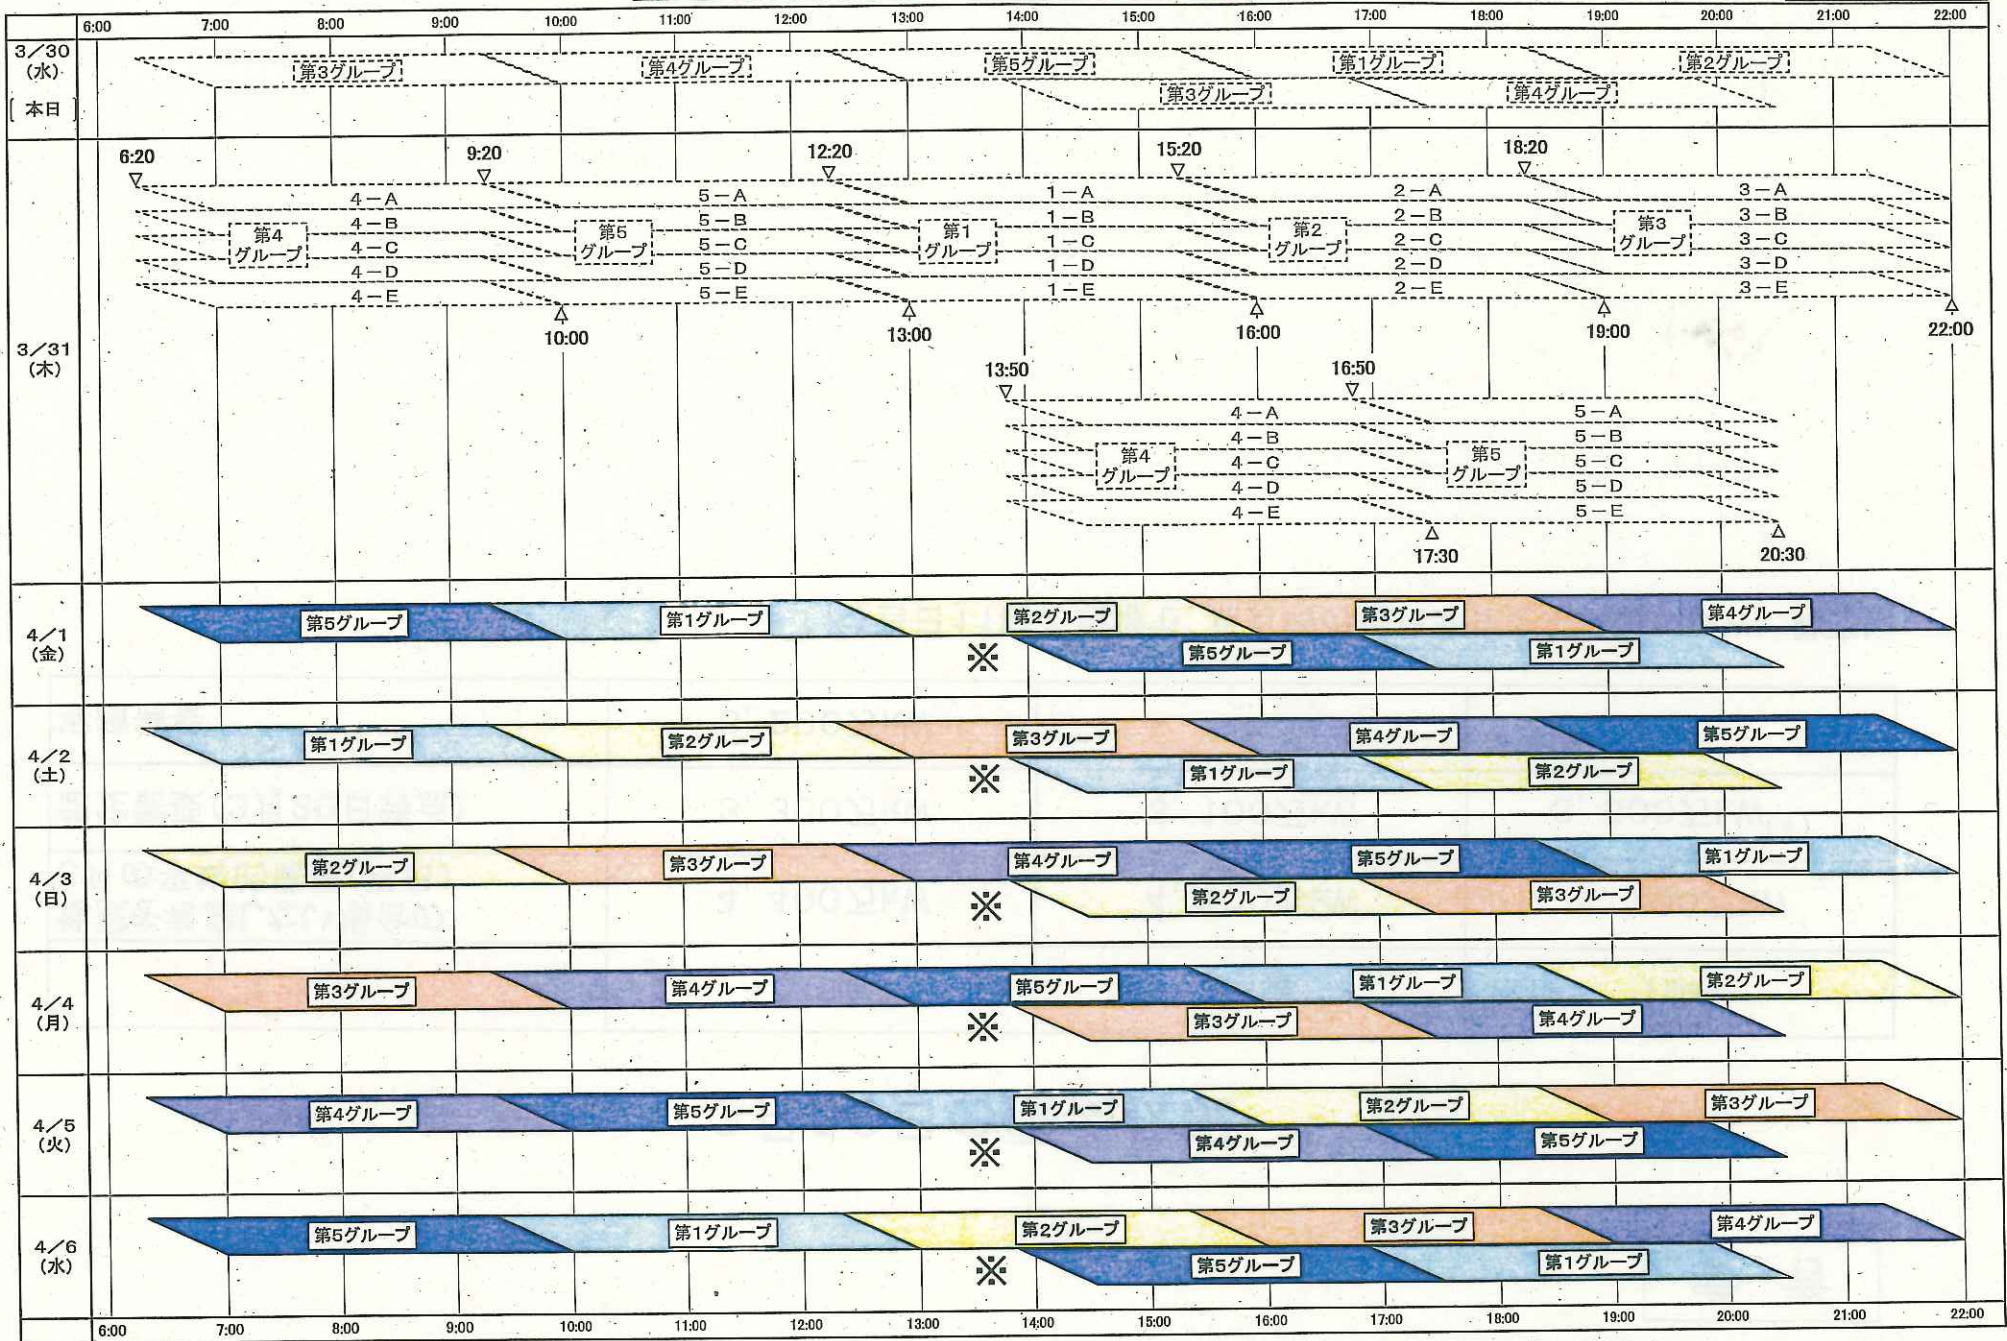 6:00 7:00 8:00 9:00 10:00 11:00 12:00 13:00 14:00 15:00 16:00 17:00 18:00 19:00 20:00 21:00 22:00
3/30
(水)
[本日]
第3グループ 第4グループ 第5グループ 第1グループ 第2グループ
第3グループ 第4グループ
3/31
(木)
6:20 9:20 12:20 15:20 18:20
▽ ▽ ▽ ▽ ▽
4-A 5-A 1-A 2-A 3-A
4-B 5-B 1-B 2-B 3-B
第4 第5 第1 第2 第3
グループ グループ グループ グループ グループ
4-C 5-C 1-C 2-C 3-C
4-D 5-D 1-D 2-D 3-D
4-E 5-E 1-E 2-E 3-E
△ △ △ △ △
10:00 13:00 16:00 19:00 22:00
13:50 16:50
▽ ▽
4-A 5-A
4-B 5-B
第4 第5
グループ グループ
4-C 5-C
4-D 5-D
4-E 5-E
△ △
17:30 20:30
4/1
(金)
第5グループ 第1グループ 第2グループ 第3グループ 第4グループ
※ 第5グループ 第1グループ
4/2
(土)
第1グループ 第2グループ 第3グループ 第4グループ 第5グループ
※ 第1グループ 第2グループ
4/3
(日)
第2グループ 第3グループ 第4グループ 第5グループ 第1グループ
※ 第2グループ 第3グループ
4/4
(月)
第3グループ 第4グループ 第5グループ 第1グループ 第2グループ
※ 第3グループ 第4グループ
4/5
(火)
第4グループ 第5グループ 第1グループ 第2グループ 第3グループ
※ 第4グループ 第5グループ
4/6
(水)
第5グループ 第1グループ 第2グループ 第3グループ 第4グループ
※ 第5グループ 第1グループ
6:00 7:00 8:00 9:00 10:00 11:00 12:00 13:00 14:00 15:00 16:00 17:00 18:00 19:00 20:00 21:00 22:00